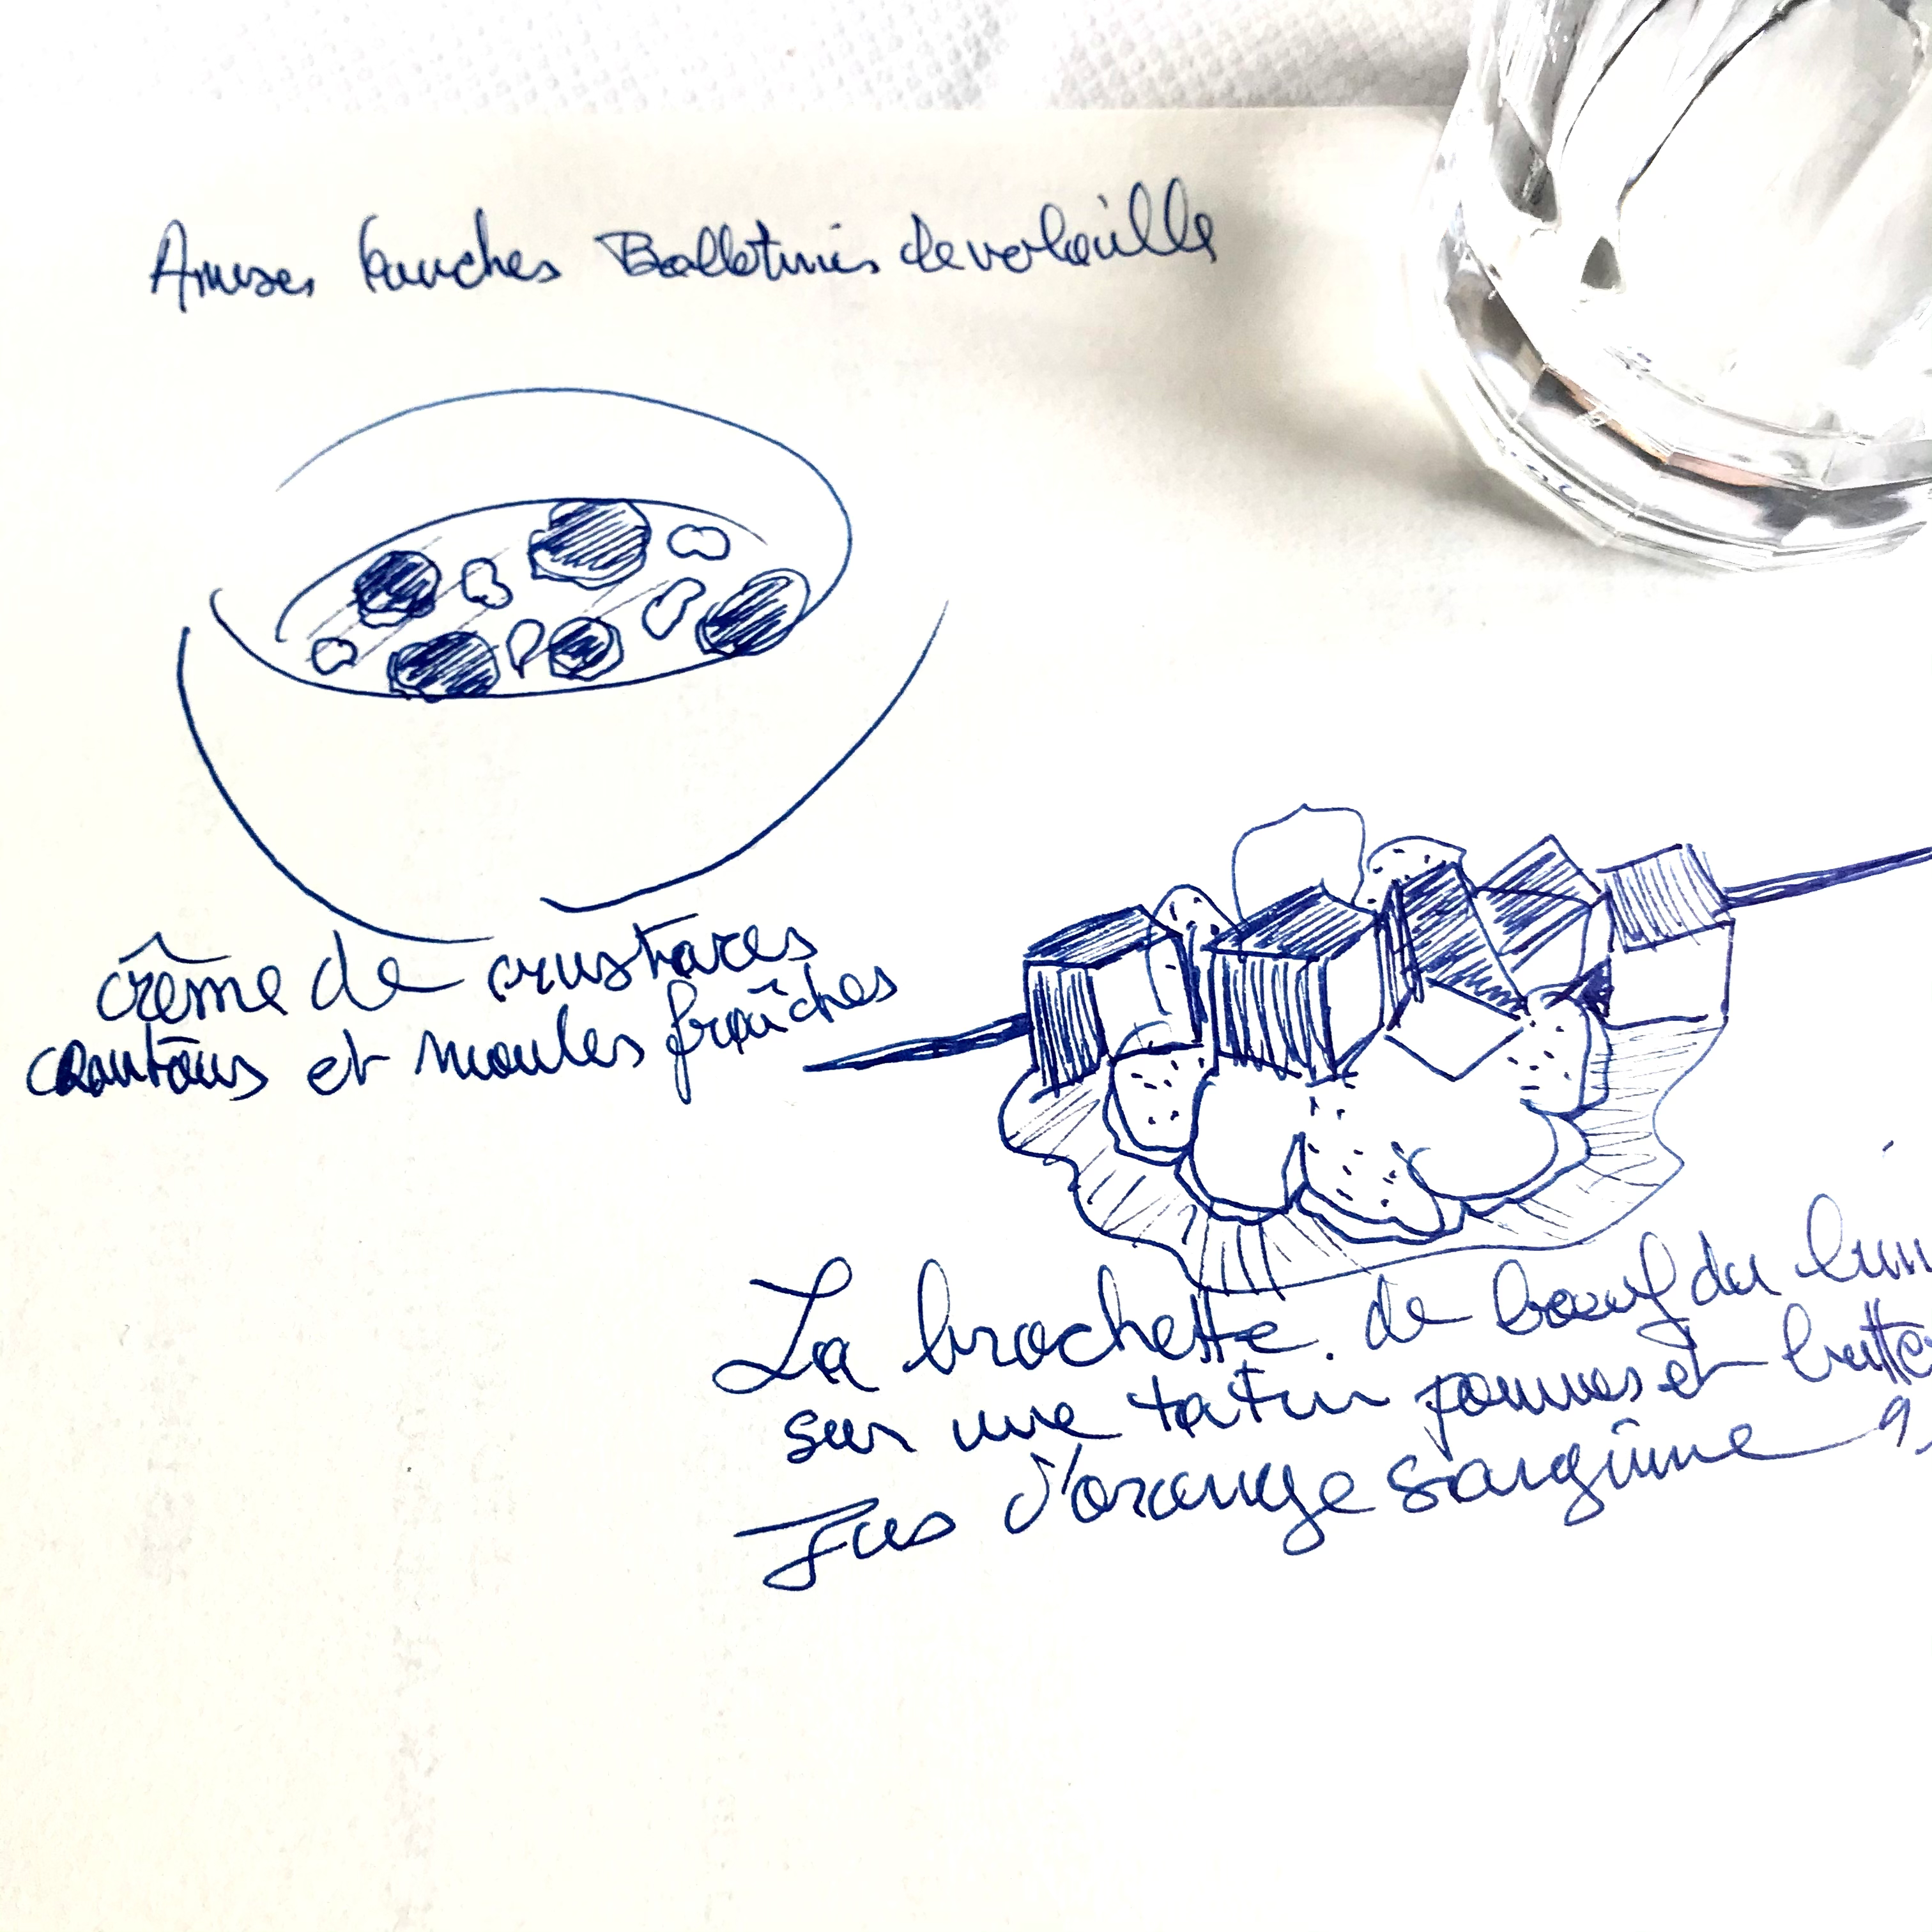 Amuses bouches Ballotines de volaille
crème de crustaces
croutons et moules fraîches
La brochette de boeuf du lim
sur une tatin pommes et bette
Jus d'orange sanguine